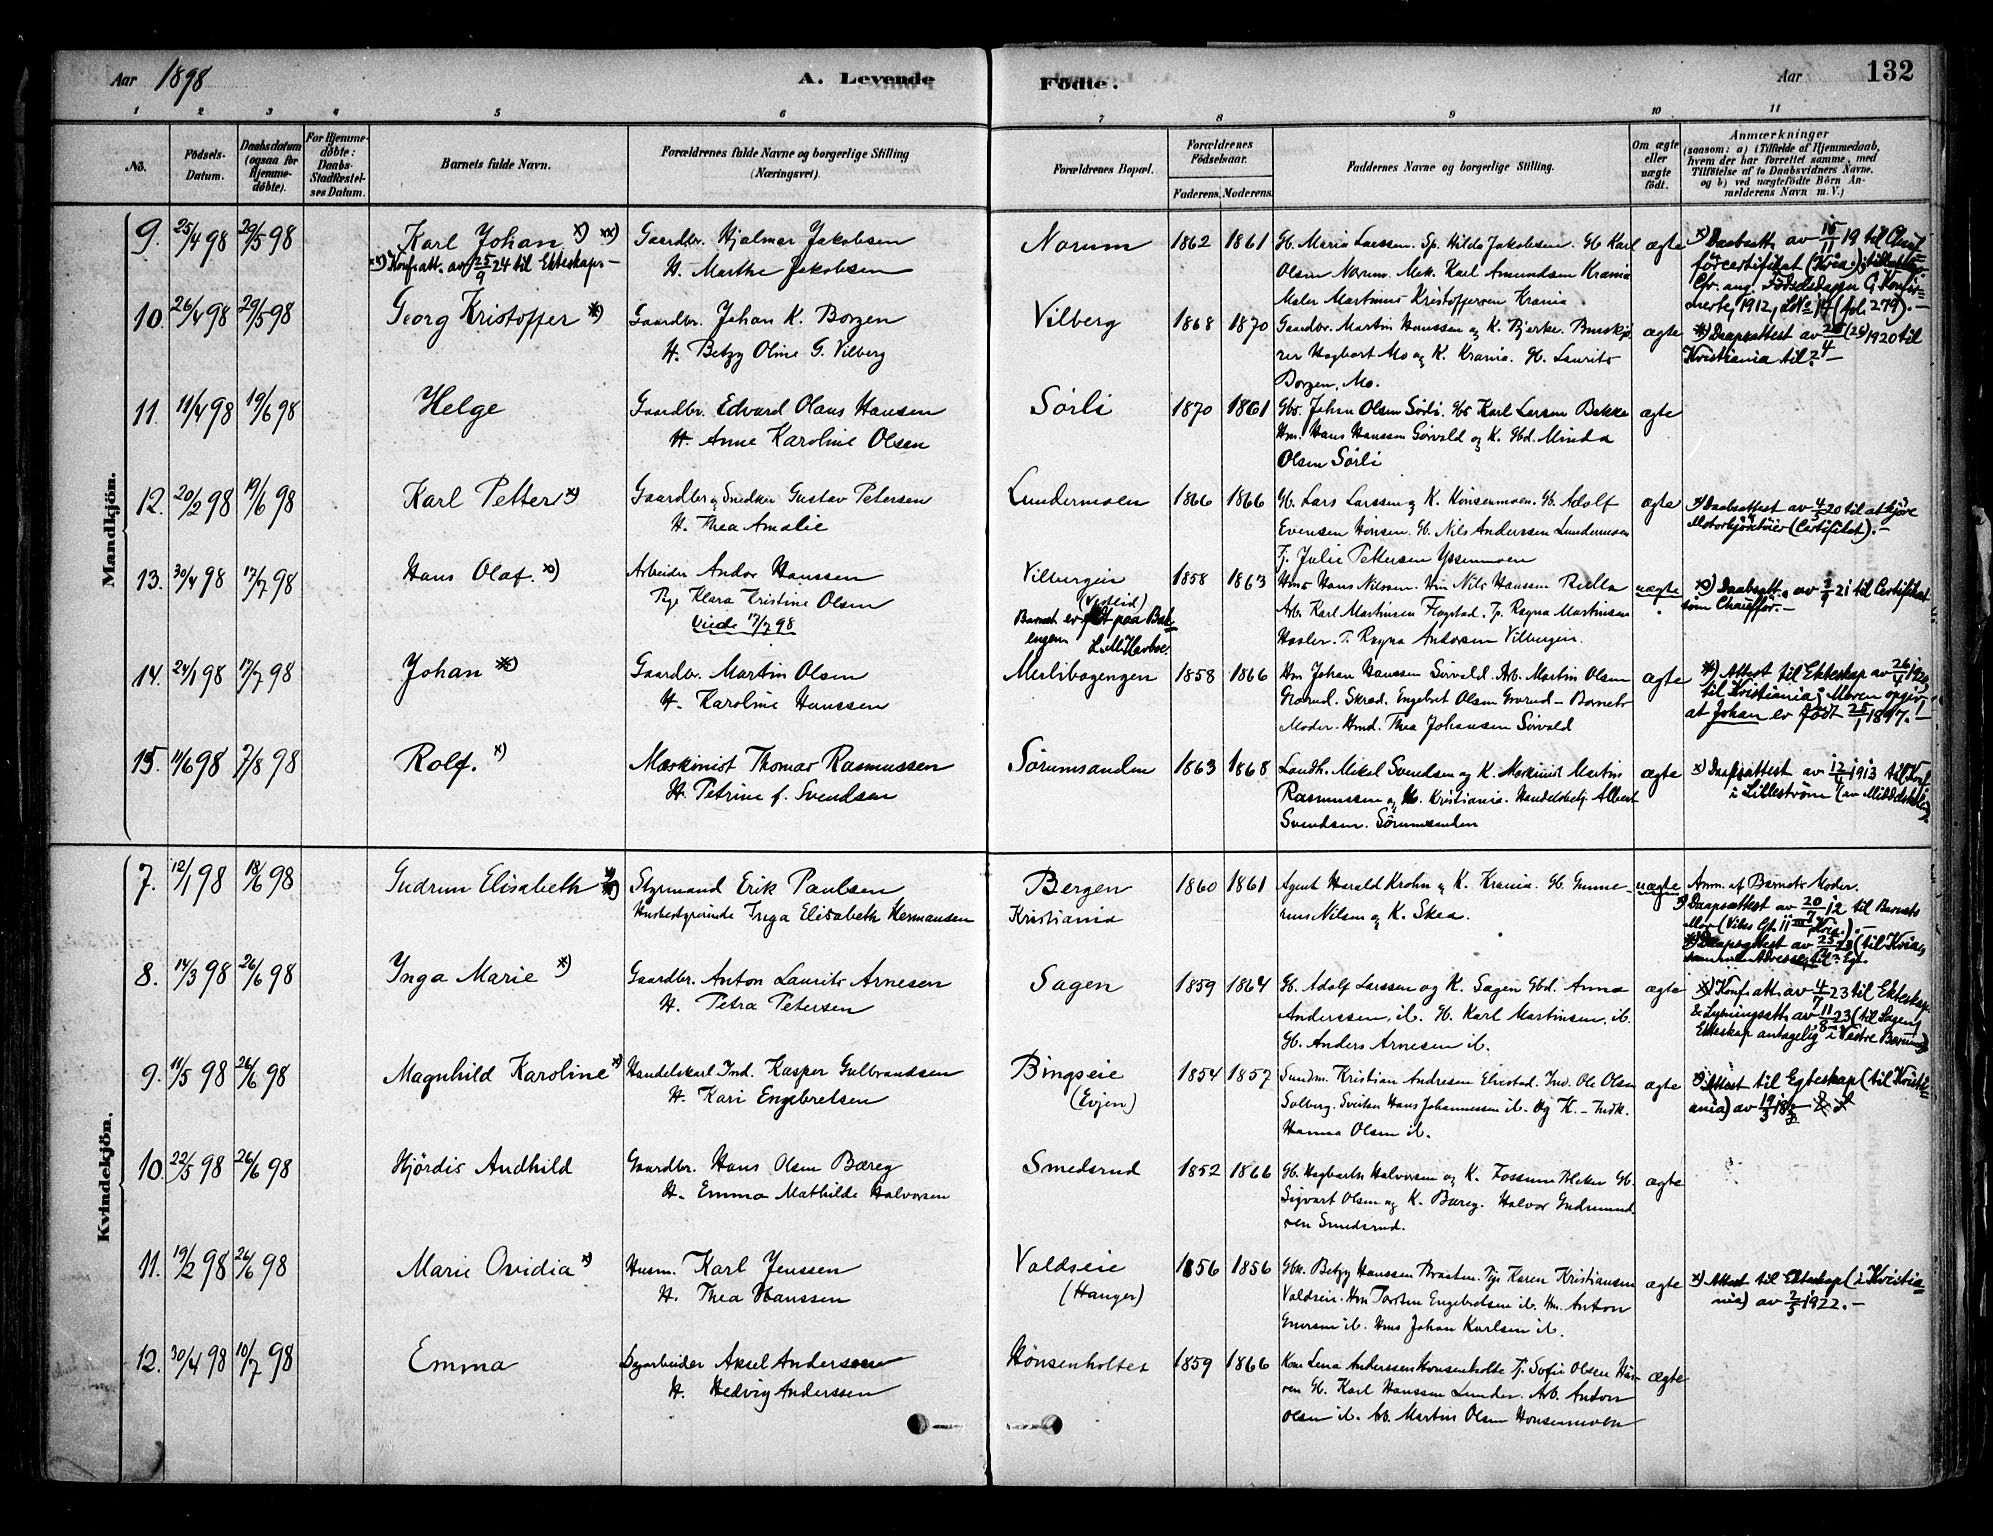 Aar 1898
A. Levende
Födte.
Aar
132
1 2 3 4 5 6 7 8 9 10 11
No.
Födsels-
Datum.
Daabsdatum
(ogsaa for
Hjemme-
döbte).
For Hjemme-
döbte:
Daabs-
Stadfæstel-
ses Datum.
Barnets fulde Navn.
Forældrenes fulde Navne og borgerlige Stilling
(Næringsvei).
Forældrenes Bopæl.
Forældrenes
Födselsaar.
Faderens. Moderens.
Faddernes Navne og borgerlige Stilling.
Om ægte
eller
uægte
födt.
Anmærkninger
(saasom: a) i Tilfælde af Hjemmedaab,
hvem der har forrettet samme, med
Tilföielse af to Daabsvidners Navne,
og b) ved uægtefödte Börn An-
melderens Navn m. V.)
Mandkjön.
9. 25/4 98 29/5 98 Karl Johan x) xx)
xx) Konf.att. av 25/9 24 til Ekteskap.-
Gaardbr. Hjalmar Jakobsen
H. Marthe Jakobsen
Norum 1862 1861
Gb. Marie Larssen. Sp. Hilda Jakobsen. Gb Karl
Olsen Norum. Mek. Karl Amundsen Krania
Maler Martinus Kristoffersen Krania
ægte
x) Daabsatt. av 15/11 19 til Chauf-
förcertifikat (Kria.)
Cfr. ang. Fødselsdagen Konfir-
merte, 1912, L. No 14 (fol. 279).-
10. 26/4 98 29/5 98 Georg Kristoffer x)
Gaardbr. Johan K. Borgen
H. Betzy Oline G. Vilberg
Vilberg 1868 1870
Gaardbr. Martin Hanssen og K. Bjerke.
rer Hagbart Mo og K. Krania. Gb. Laurits
Borgen, Mo.
ægte
x) Daapsattest av 1920 til
Kristiania
11. 11/4 98 19/6 98 Helge
Gaardbr. Edvard Olaus Hansen
H. Anne Karoline Olsen
Sørli 1870 1861
Gbr. Johan Olsen Sørli. Gbr Karl Larsen Bakke
Hm. Hans Hanssen Sørvald og K. Gbd. Minda
Olsen Sørli
ægte
12. 20/2 98 19/6 98 Karl Petter x)
Gaardbr og Snedker Gustav Petersen
H. Thea Amalie
Lundermoen 1866 1866
Gb. Lars Larssen og K. Hønsenmoen. Gb. Adolf
Evensen Honsen. Gb. Nils Anderssen Lundermoen
Tj. Julie Pettersen Yssenmoen
ægte
x) Daabsattest av 4/5 20 til at kjøre
Motorkjøretøier (Certifikat).-
13. 30/4 98 17/7 98 Hans Olaf. x)
Arbeider Andor Hanssen
Pige Klara Kristine Olsen
Viede 17/7 98
Vilbergeie
(Vestlid)
Barnet er født paa Bak-
engen Lille Herbre.
1858 1863
Hms Hans Nilssen. Hm Nils Hanssen Rulla
Arb. Karl Martinsen Flogstad. Tj. Ragna Martinsen
Hasler. T. Ragna Andersen Vilbergeie.
uægte
x) Daabsatt. av 21 til Certifikat
som Chauffør.-
14. 24/1 98 17/7 98 Johan x)
Gaardbr. Martin Olsen
H. Karoline Hanssen
Merlibagengen 1858 1866
Hm Johan Hanssen Sørvald. Arb. Martin Olsen
Grorud. Skræd. Engebret Olsen Grorud - Barnets
Moder. Hmd. Thea Johansen Sørvald
ægte
x) Attest til Ekteskap av 26/4
til Kristiania; Moren opgir,
at Johan er født 25/1 1897.-
15. 11/6 98 7/8 98 Rolf. x)
Maskinist Thomas Rasmussen
H. Petrine f. Svendsen
Sørumsanden 1863 1868
Landh. Mikal Svendsen og K. Maskinist Martin
Rasmussen og H. Kristiania. Handelsbetj. Albert
Svendsen. Sørumsanden
ægte
x) Daapsattest av 12/4 1913 til Konf.
i Lilleström (av Middelskolen)
Kvindekjön.
7. 12/1 98 18/6 98 Gudrun Elisabeth x)
Styrmand Erik Paulsen
Husbestyrerinde Inga Elisabeth Hermansen
Bergen
Kristiania
1860 1861
Agent Harald Krohn og K. Krania. Gb. Gunne-
rius Nilsen og K. Skea.
uægte
Anm. af Barnets Moder.
x) Daapsattest av 20/7 12 til Barnets
Mor (Vibes Gt. 11 III Kria.).-
Daapsattest av 25 23 (til Kria,
samme Adresse)
8. 14/3 98 26/6 98 Inga Marie x)
Gaardbr. Anton Laurits Arnesen
H. Petra Petersen
Sagen 1859 1864
Gb. Adolf Larssen og K. Sagen Gbd. Anna
Anderssen, ib. Gb. Karl Martinsen, ib.
Gb. Anders Arnesen ib.
ægte
x) Konf.att. av 4/7 23 til Ekteskap
& Lysningsatt. av 11/8 23 (til Sagen)
Ekteskap antagelig i Vestre Bærum)
9. 11/5 98 26/6 98 Magnhild Karoline x)
Handelskarl Ind. Kasper Gulbrandsen
H. Kari Engebretsen
Bingseie
(Evjen)
1854 1857
Sundm. Kristian Andresen Elvestad. Ind. Ole Olsen
Solberg. Sveitser Hans Johannessen ib. og K. - Indk.
Hanna Olsen ib.
ægte
x) Attest til Egteskap (til Kristi-
ania) av 19/3
10. 22/5 98 26/6 98 Hjördis Andhild
Gaardbr. Hans Olsen Bæreg
H. Emma Mathilde Halvorsen
Smedsrud 1852 1866
Gb. Hagbarth Halvorsen og K. Fossum Bleker Gb.
Sigvart Olsen og K. Bæreg. Halvor Gudmund-
sen Smedsrud.
ægte
11. 19/2 98 26/6 98 Marie Ovidia x)
Husm. Karl Jenssen
H. Thea Hanssen
Valdseie
(Hanger)
1856 1856
Gbk. Betzy Hanssen Braaten. Pige Karen Kristiansen
Valdseie. Hm Torsten Engebretsen ib. Hm. Anton
Enersen ib. Hms Johan Karlsen ib.
ægte
x) Attest til Ekteskap (i Kristia-
nia) av 2/3 1922.-
12. 30/4 98 10/7 98 Emma
Dgarbeider Aksel Anderssen
H. Hedvig Anderssen
Hönsenholtet 1859 1866
Kone Lena Anderssen Honsenholte Tj. Sofie Olsen
Gb. Karl Hanssen Lunder. Arb. Anton
Olsen ib. Arb. Martin Olsen Honsenmoen
ægte